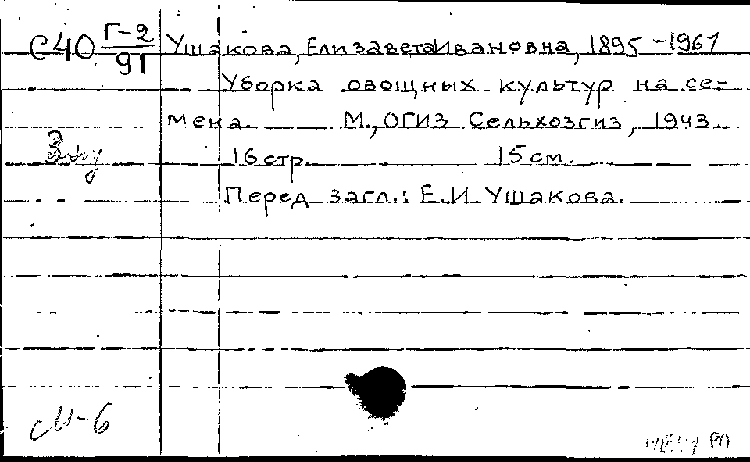 С40 Г-2/91 Ушакова, Елизавета Ивановна, 1895-1967
Уборка овощных культур на се-
мена. М., ОГИЗ Сельхозгиз, 1943.
16 стр. 15 см.
Перед загл.: Е.И. Ушакова.
М-6